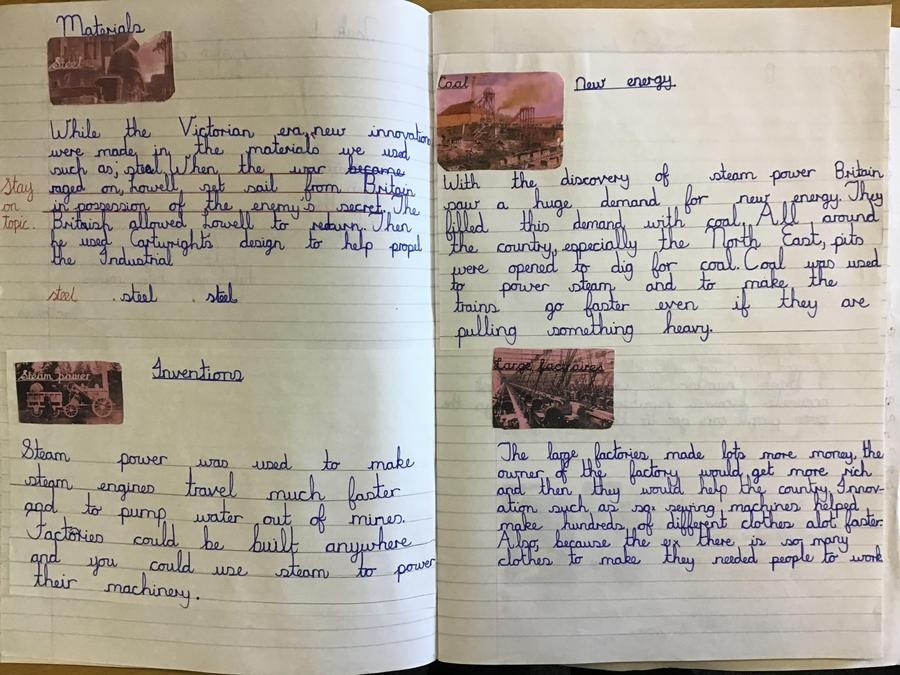 Materials
Steel
While the Victorian era, new innovations
were made in the materials we used
such as; steel. When the war became
raged on, Lowell set sail from Britain
in possession of the enemy's secret. The
Stay
on
topic.
Britaish allowed Lowell to return. Then
he used Cartwright's design to help propel
the Industrial
steel . steel . steel
Steam power
Inventions
Steam power was used to make
steam engines travel much faster
and to pump water out of mines.
Factories could be built anywhere
and you could use steam to power
their machinery.
Coal
New energy
With the discovery of steam power Britain
saw a huge demand for new energy. They
filled this demand with coal. All around
the country, especially the North East, pits
were opened to dig for coal. Coal was used
to power steam and to make the
trains go faster even if they are
pulling something heavy.
Large factories
The large factories, made lots more money, the
owner of the factory would get more rich
and then they would help the country. Innov-
ation such as so sewing machines helped
make hundreds of different clothes alot faster.
Also, because the ex there is so many
clothes to make they needed people to work